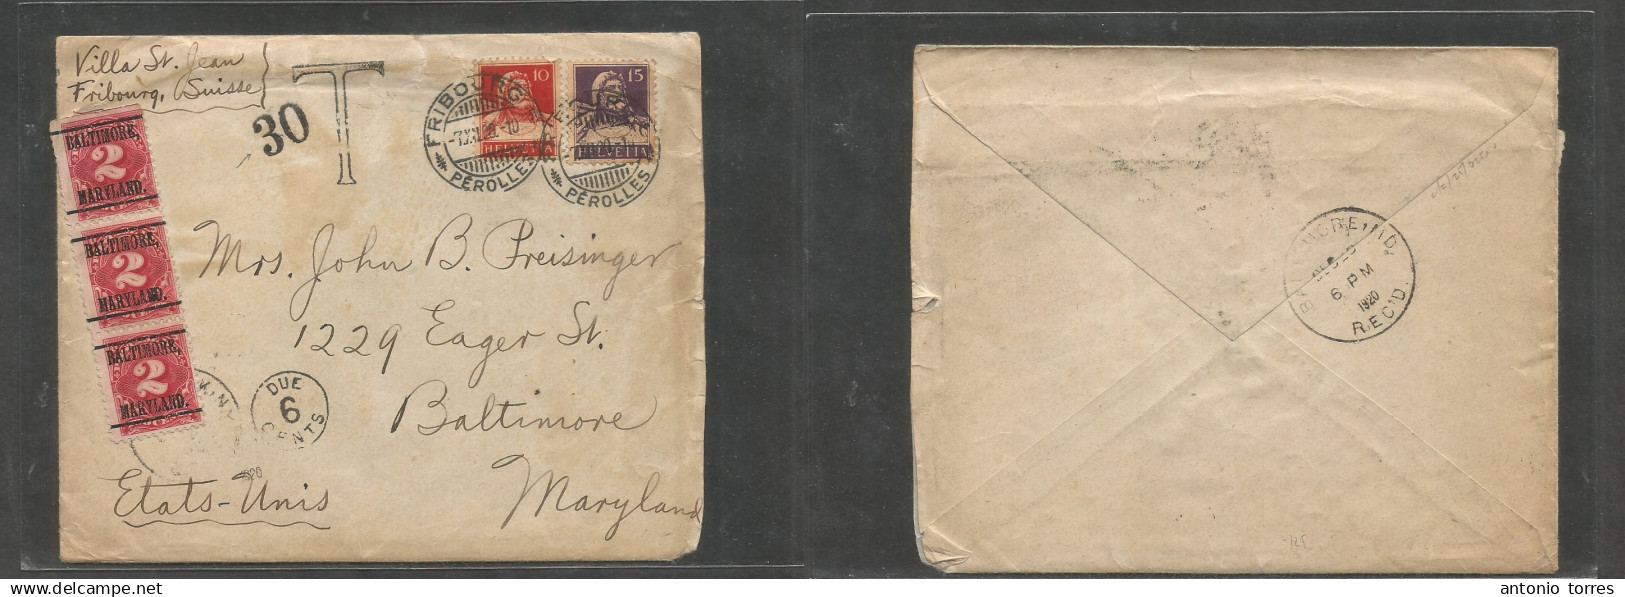 Villa St. Jean
Fribourg, Suisse
30
T
10
HELVETIA
15
HELVETIA
FRIBOURG
PÉROLLES
PÉROLLES
BALTIMORE,
2
MARYLAND.
BALTIMORE,
2
MARYLAND.
BALTIMORE,
2
MARYLAND.
DUE
6
CENTS
1920
Mrs. John B. Preisinger
1229 Eager St.
Baltimore
Maryland
Etats-Unis
6 PM
1920
REC'D.
antonio torres